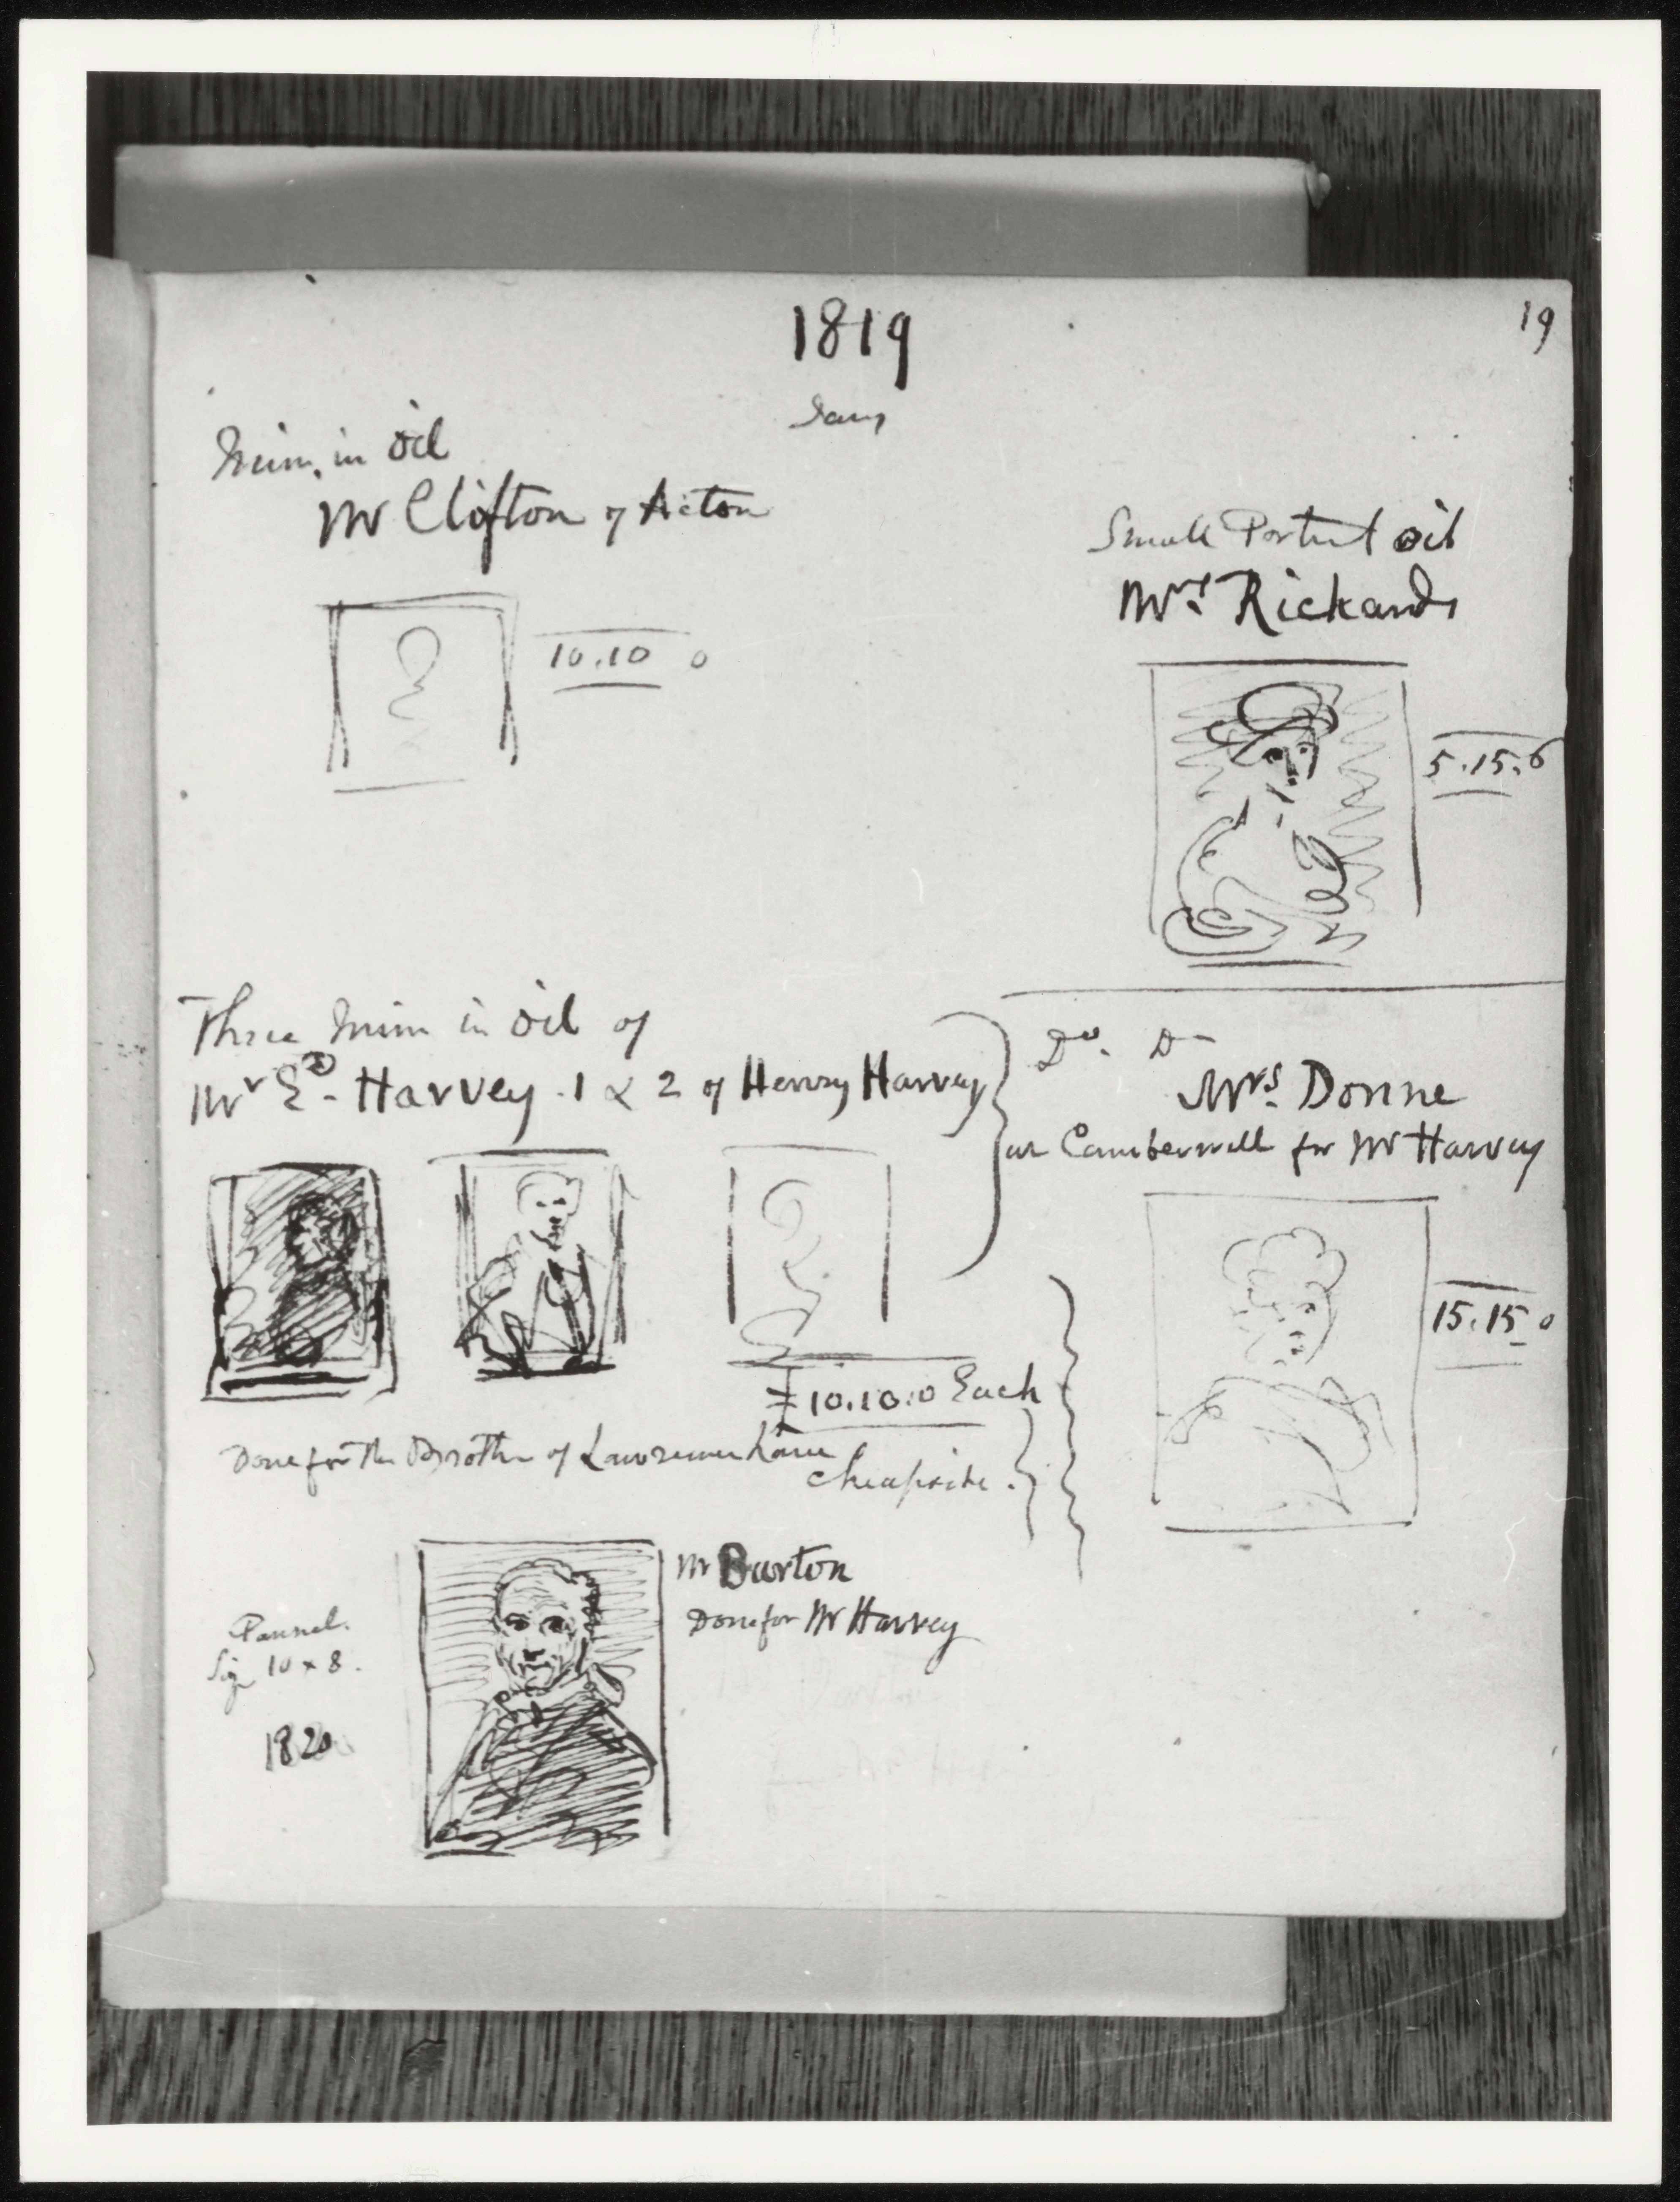 1819
19
Jany
Min. in Oil
Mr Clifton of Acton
10.10 0
Small Portrait oil
Mrs. Rickards
5.15.6
Three Min in Oil of
Mr Ed. Harvey. 1 & 2 of Henry Harvey
10.10.0 Each
Done for the Brother of Lawrence Lane
Cheapside.
Do. Do
Mrs. Donne
at Camberwell for Mr Harvey
15.15 0
Mr Burton
Done for Mr Harvey
Pannel.
Size 10 x 8.
1820